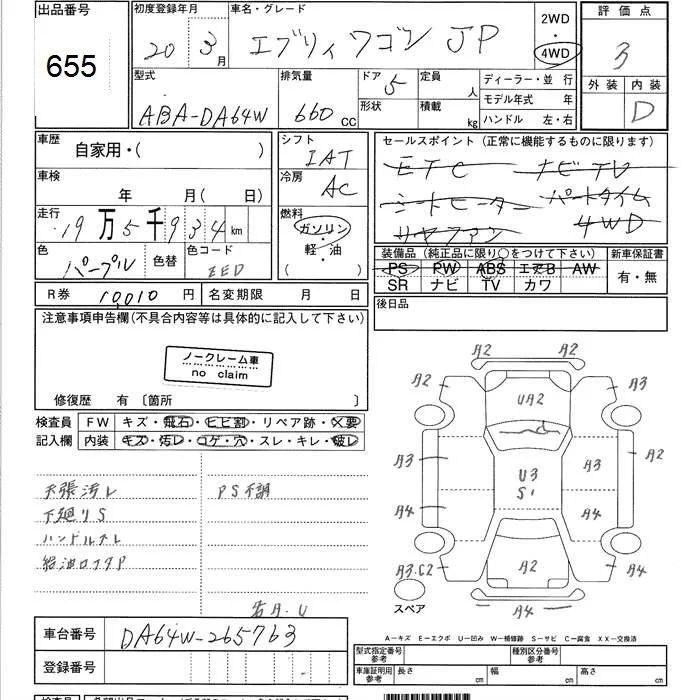 出品番号 初度登録年月 車名・グレード 2WD 評価点
655 20年 3月 エブリィ ワゴン JP ・ 4WD 3
型式 排気量 ドア 5 定員 人 ディーラー・並行 外装 内装
ABA-DA64W 660 cc 形状 積載 kg モデル年式 年 D
ハンドル 左・右
車歴 自家用・( ) シフト IAT セールスポイント (正常に機能するものに限ります)
車検 年 月( 日) 冷房 AC ETC ナビTV
走行 19万5千934km 燃料 ガソリン・軽・油 ( ) シートヒーター パートタイム
リヤファン 4WD
色 パープル 色替 色コード ZED 装備品 (純正品に限り○をつけて下さい) 新車保証書
PS PW ABS エアB AW 有・無
R券 10010円 名変期限 月 日 SR ナビ TV カワ
注意事項申告欄(不具合内容等は具体的に記入して下さい) 後日品
ノークレーム車
no claim
修復歴 有 〔箇所 〕
検査員 FW キズ・飛石・ヒビ割・リペア跡・X要
記入欄 内装 キズ・汚レ・コゲ・穴・スレ・キレ・破レ
天張汚レ PS不調
下廻りS
ハンドルスレ
給油口フタP
若A.U
A2 A2
A2 UA2 A3
A3 U3 A3 A2
A4 S1 A4
A3.C2 A2 A4
スペア A4
A-キズ E-エクボ U-凹み W-補修跡 S-サビ C-腐食 XX-交換済
車台番号 DA64W-265763 型式指定番号 参考 種別区分番号 参考
登録番号 車庫証明用 参考 長さ cm 幅 cm 高さ cm